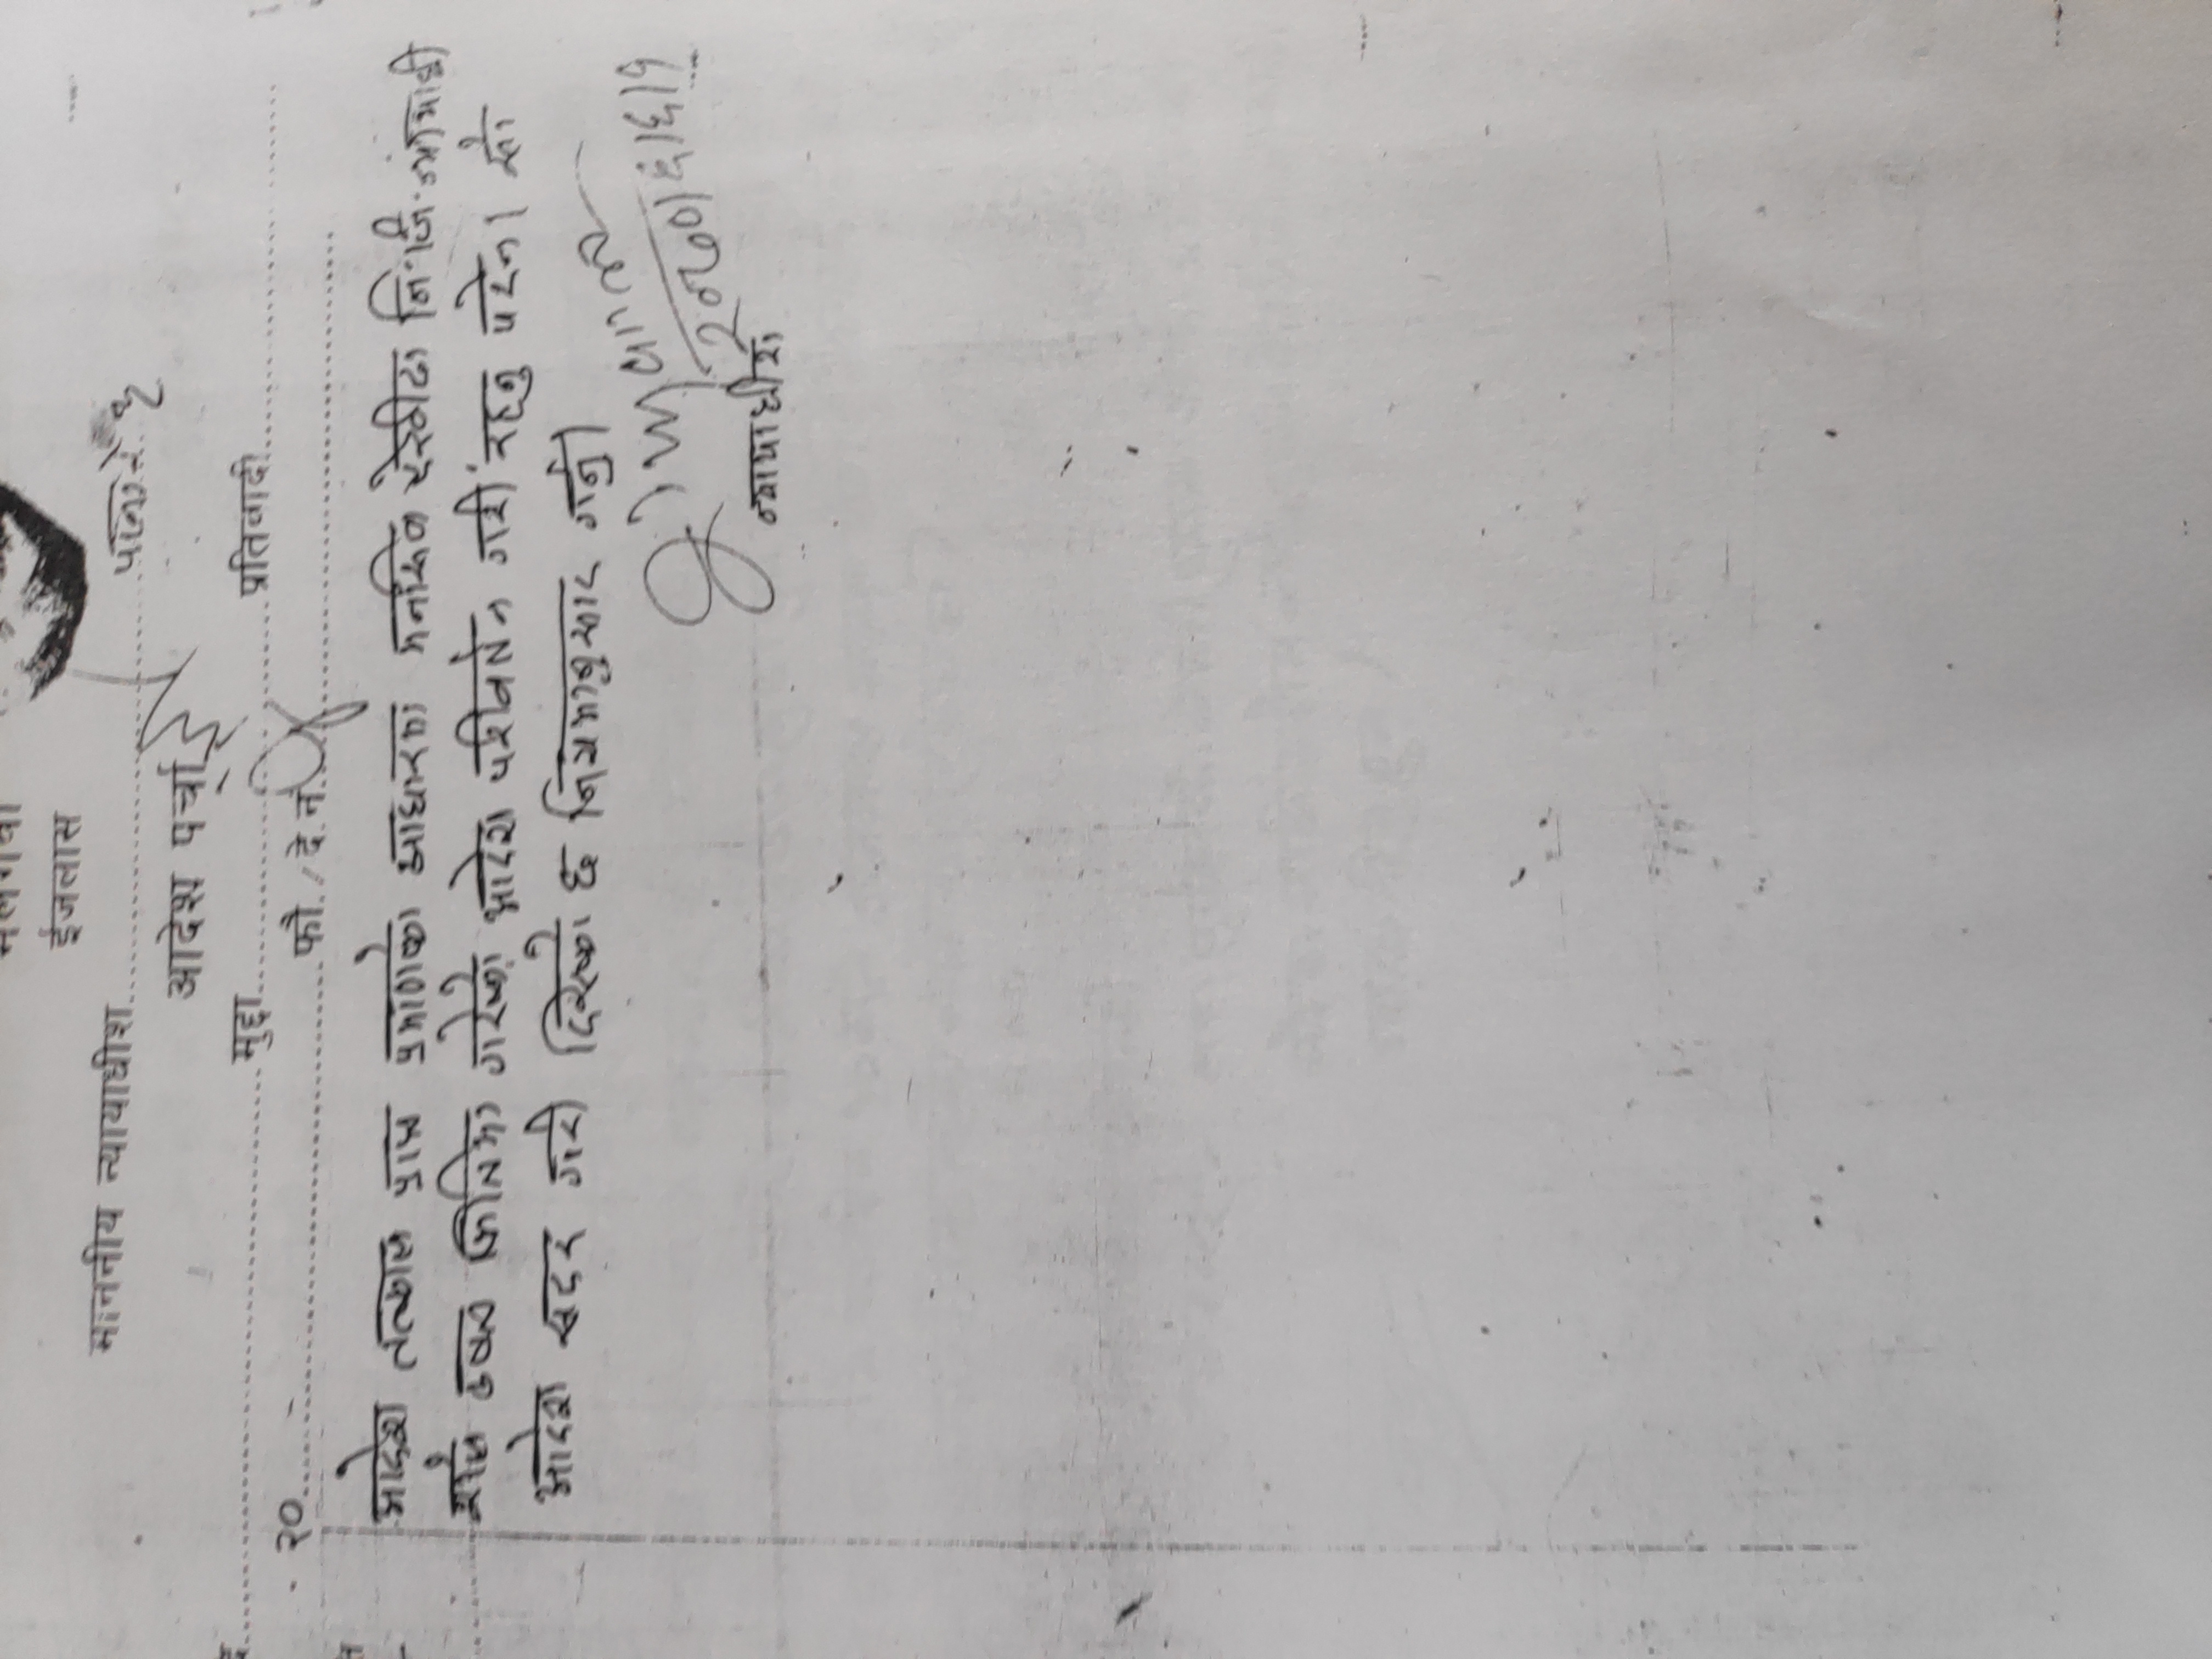 मलंगवा
ईजलास
माननीय न्यायाधीश........................
आदेश पर्चा
मुद्दा........................प्रतिवादी........................
२०........................फौ. / दे.नं.........................
आदेश तत्काल प्राप्त प्रमाणको आधारमा मनासिव देखींदा नि.जि.न्यायाधी
शले उक्त मितिमा गरेको आदेश परीवर्तन गरी रहनु परेन। सो
आदेश सदर गरी दिएको छ नियमानुसार गर्नु।
२०७०।६।६।१
न्यायाधीश